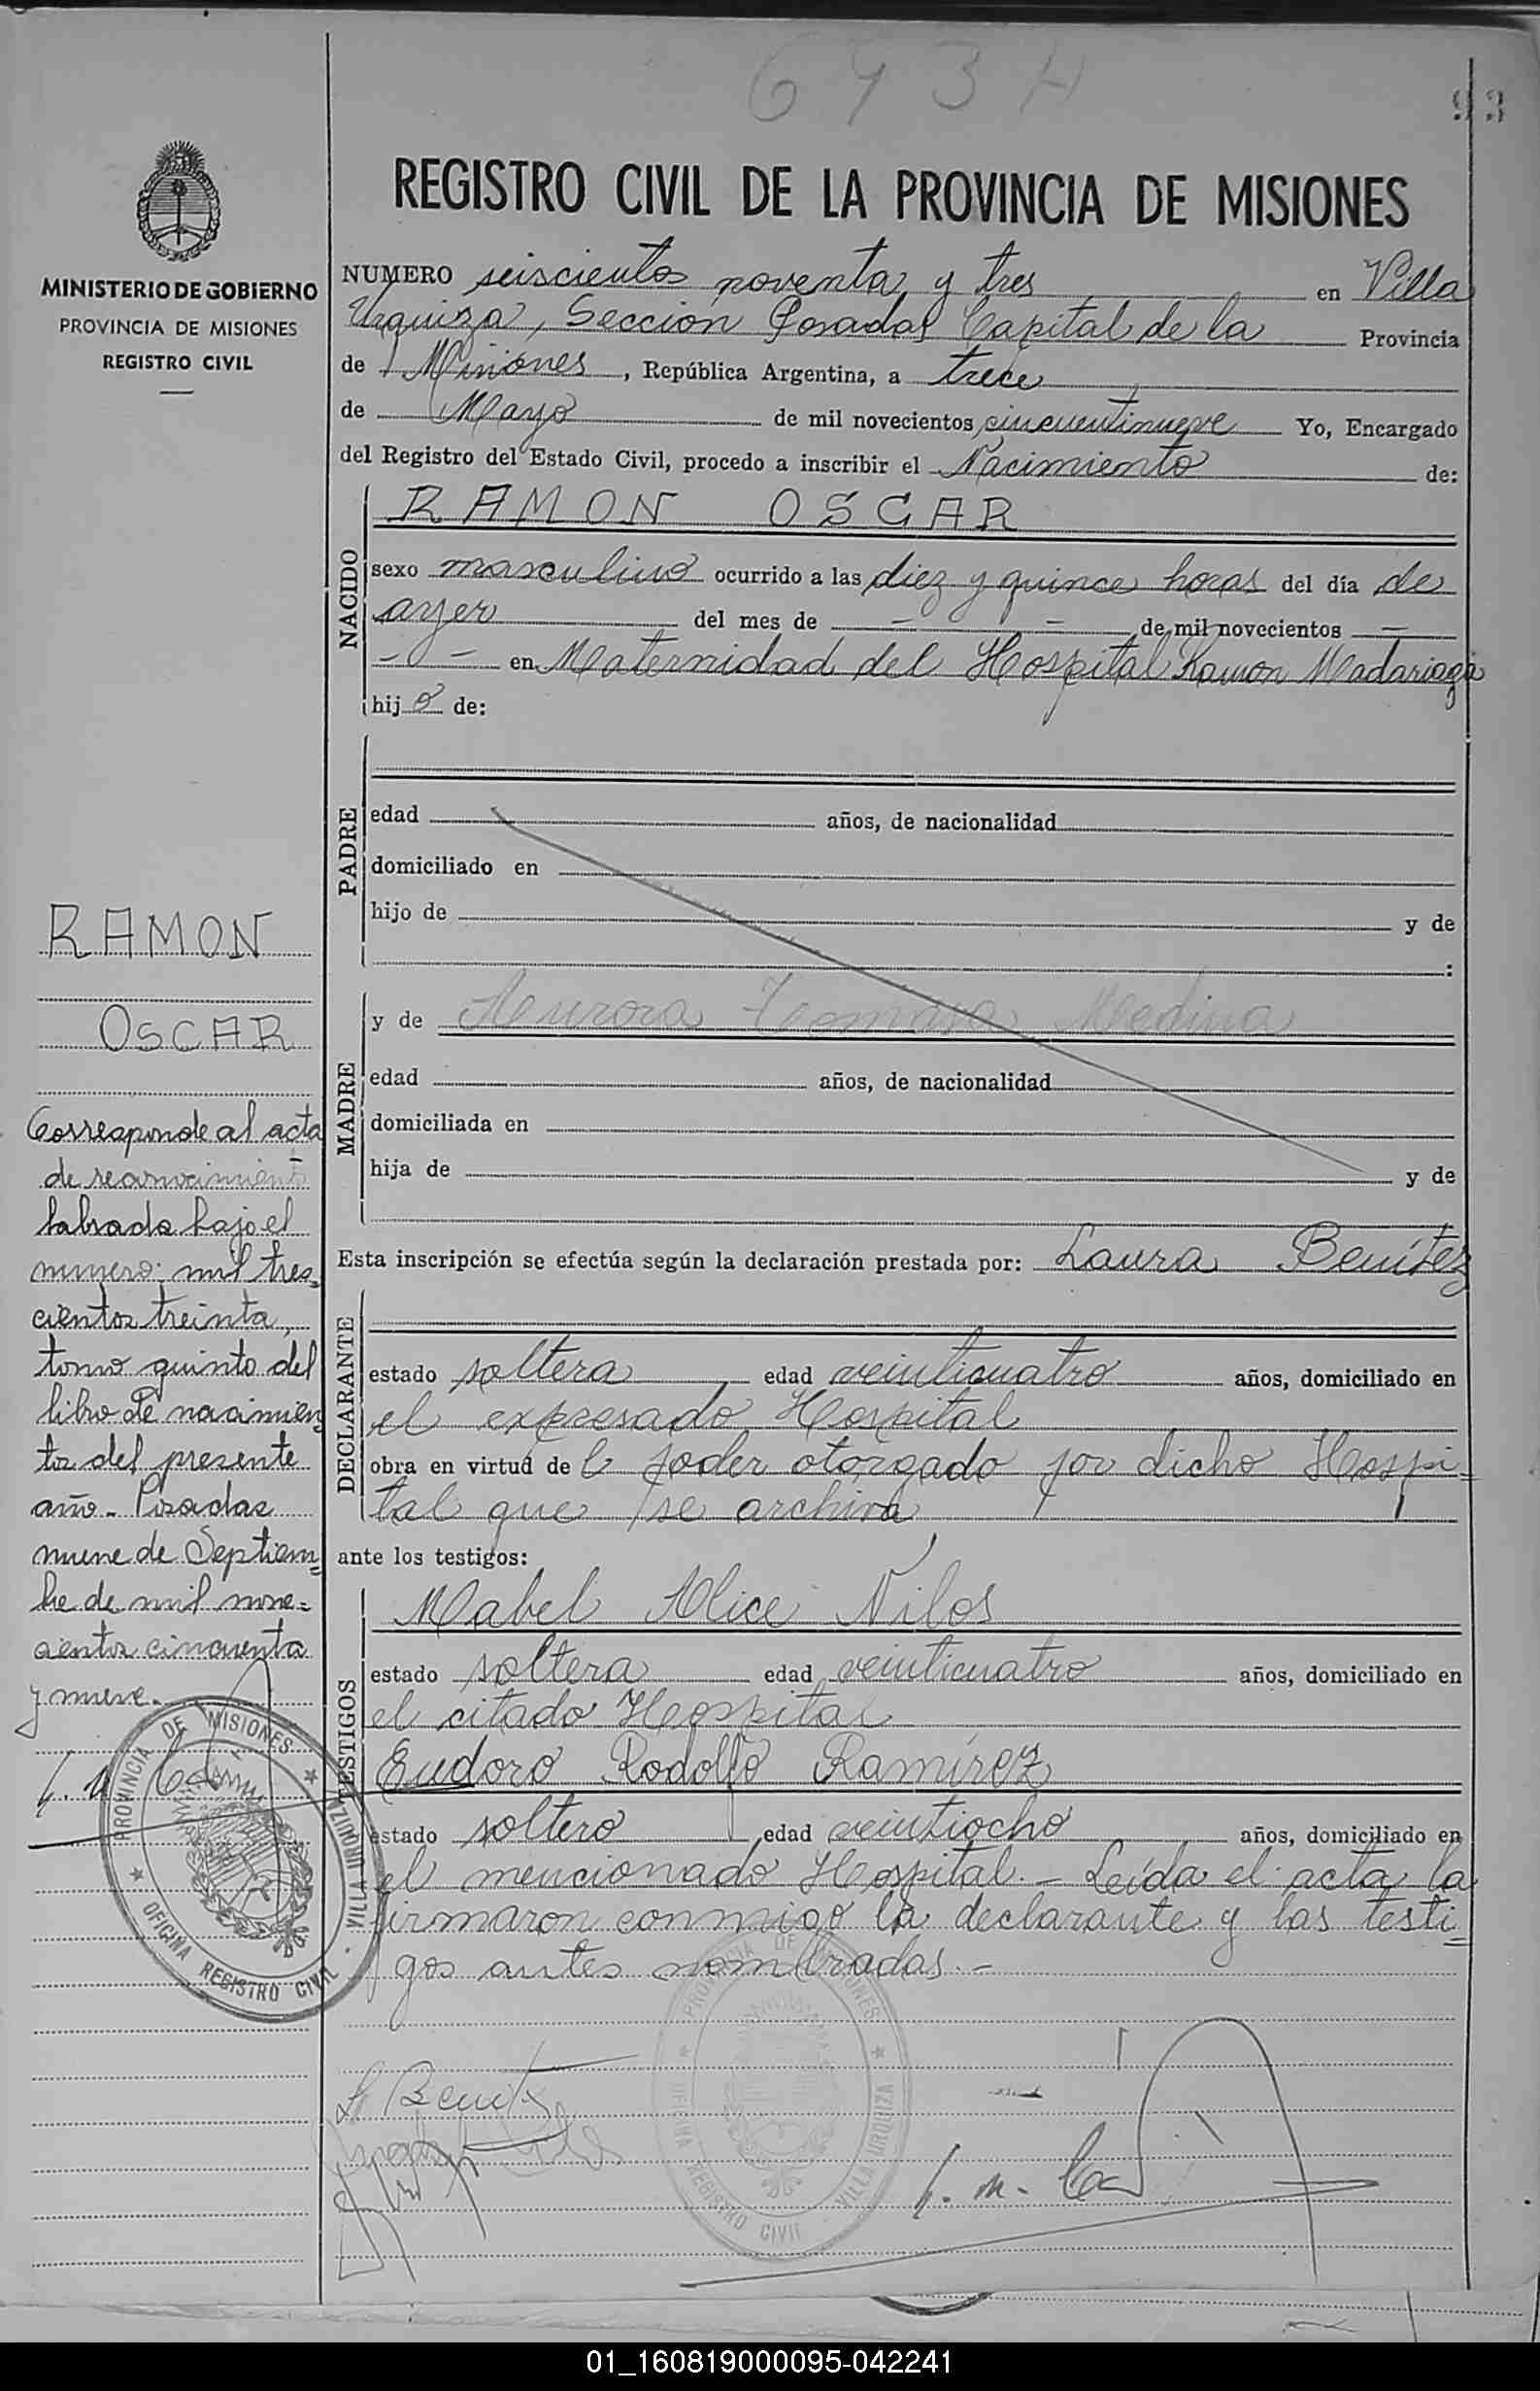 693 H
93
MINISTERIO DE GOBIERNO
PROVINCIA DE MISIONES
REGISTRO CIVIL
REGISTRO CIVIL DE LA PROVINCIA DE MISIONES
NUMERO seiscientos noventa y tres en Villa
Urquiza, Sección Posadas Capital de la Provincia
de Misiones, República Argentina, a trece
de Mayo de mil novecientos cincuentinueve Yo, Encargado
del Registro del Estado Civil, procedo a inscribir el Nacimiento de:
NACIDO
RAMON OSCAR
sexo masculino ocurrido a las diez y quince horas del día de
ayer del mes de - - de mil novecientos -
- - en Maternidad del Hospital Ramon Madariaga
hijo de:
PADRE
edad años, de nacionalidad
domiciliado en
hijo de y de
:
MADRE
y de Aurora Tomasa Medina
edad años, de nacionalidad
domiciliada en
hija de y de
Esta inscripción se efectúa según la declaración prestada por: Laura Benítez
DECLARANTE
estado soltera edad veinticuatro años, domiciliado en
el expresado Hospital
obra en virtud de l poder otorgado por dicho Hospi=
tal que se archiva
ante los testigos:
TESTIGOS
Mabel Alice Nilos
estado soltera edad veinticuatro años, domiciliado en
el citado Hospital
Eudoro Rodolfo Ramírez
estado soltero edad veintiocho años, domiciliado en
el mencionado Hospital.- Leída el acta la
firmaron conmigo la declarante y las testi=
gos antes nombradas.-
RAMON
OSCAR
Corresponde al acta
de reconocimiento
labrada bajo el
numero: mil tres=
cientos treinta,
tomo quinto del
libro de nacimien
tos del presente
año.- Posadas
nueve de Septiem=
bre de mil nove=
cientos cincuenta
y nueve.-
PROVINCIA DE MISIONES
OFICINA REGISTRO CIVIL
VILLA URQUIZA
L Benitez
PROVINCIA DE MISIONES
OFICINA REGISTRO CIVIL
VILLA URQUIZA
01_160819000095-042241